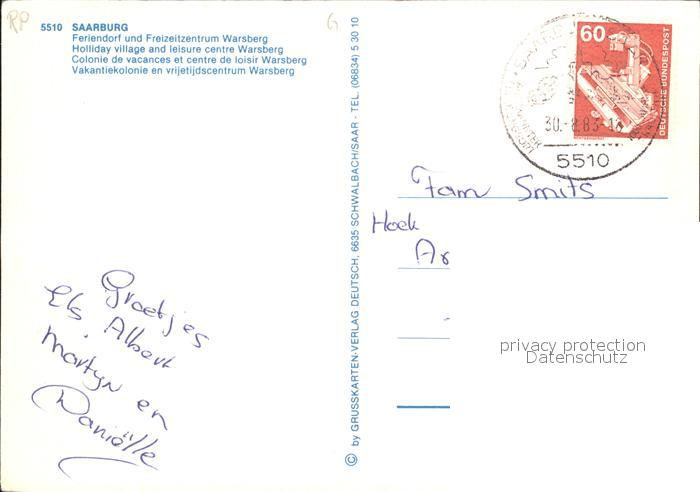 5510 SAARBURG
Feriendorf und Freizeitzentrum Warsberg
Holliday village and leisure centre Warsberg
Colonie de vacances et centre de loisir Warsberg
Vakantiekolonie en vrijetijdscentrum Warsberg
Groetjes
Els Albert
Martijn en
Daniëlle
© by GRUSSKARTEN-VERLAG DEUTSCH, 6635 SCHWALBACH/SAAR - TEL. (06834) 5 30 10
60
DEUTSCHE BUNDESPOST
30.-8.83-
5510
Fam Smits
Hoek
privacy protection
Datenschutz